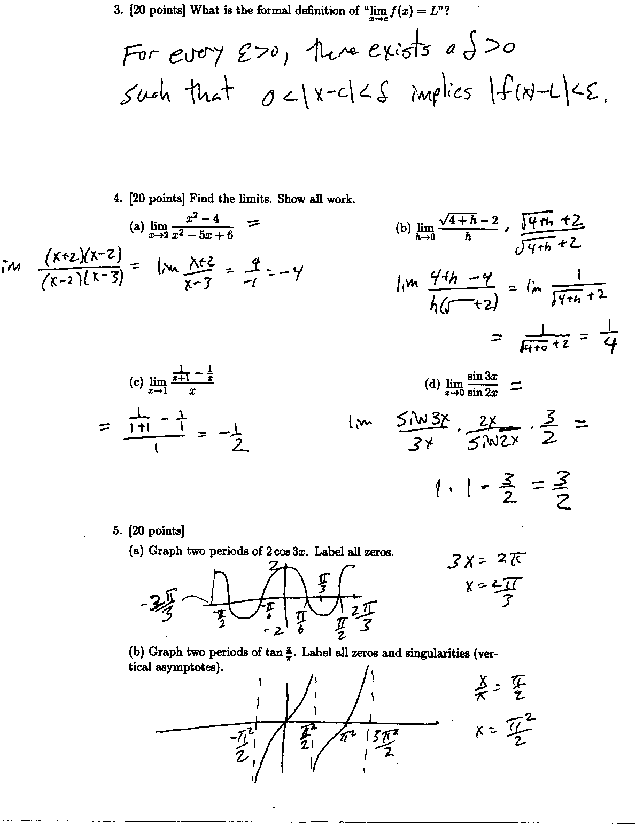 3. [20 points] What is the formal definition of "lim x→c f(x) = L"?
For every ε>0, there exists a δ>0
such that 0<|x-c|<δ implies |f(x)-L|<ε.
4. [20 points] Find the limits. Show all work.
(a) lim x→2 (x² − 4)/(x² − 5x + 6) =
lim (x+2)(x-2)/(x-2)(x-3) = lim (x+2)/(x-3) = 4/-1 = -4
(b) lim h→0 (√4+h − 2)/h · (√4+h +2)/(√4+h +2)
lim (4+h -4)/h(√ +2) = lim 1/(√4+h +2)
= 1/(√4+0 +2) = 1/4
(c) lim x→1 (1/(x+1) − 1/x)/x
= (1/(1+1) - 1/1)/1 = -1/2
(d) lim x→0 sin 3x/sin 2x =
lim SiN 3x/3x · 2x/SiN2x · 3/2 =
1 · 1 - 3/2 = 3/2
5. [20 points]
(a) Graph two periods of 2 cos 3x. Label all zeros.
3x = 2π
x = 2π/3
2
π/3
-2π/3
-π/2
-π/6
-2
π/6
π/2
2π/3
(b) Graph two periods of tan x/π. Label all zeros and singularities (ver-
tical asymptotes).
x/π = π/2
x = π²/2
-π²/2
π²/2
π²
3π²/2